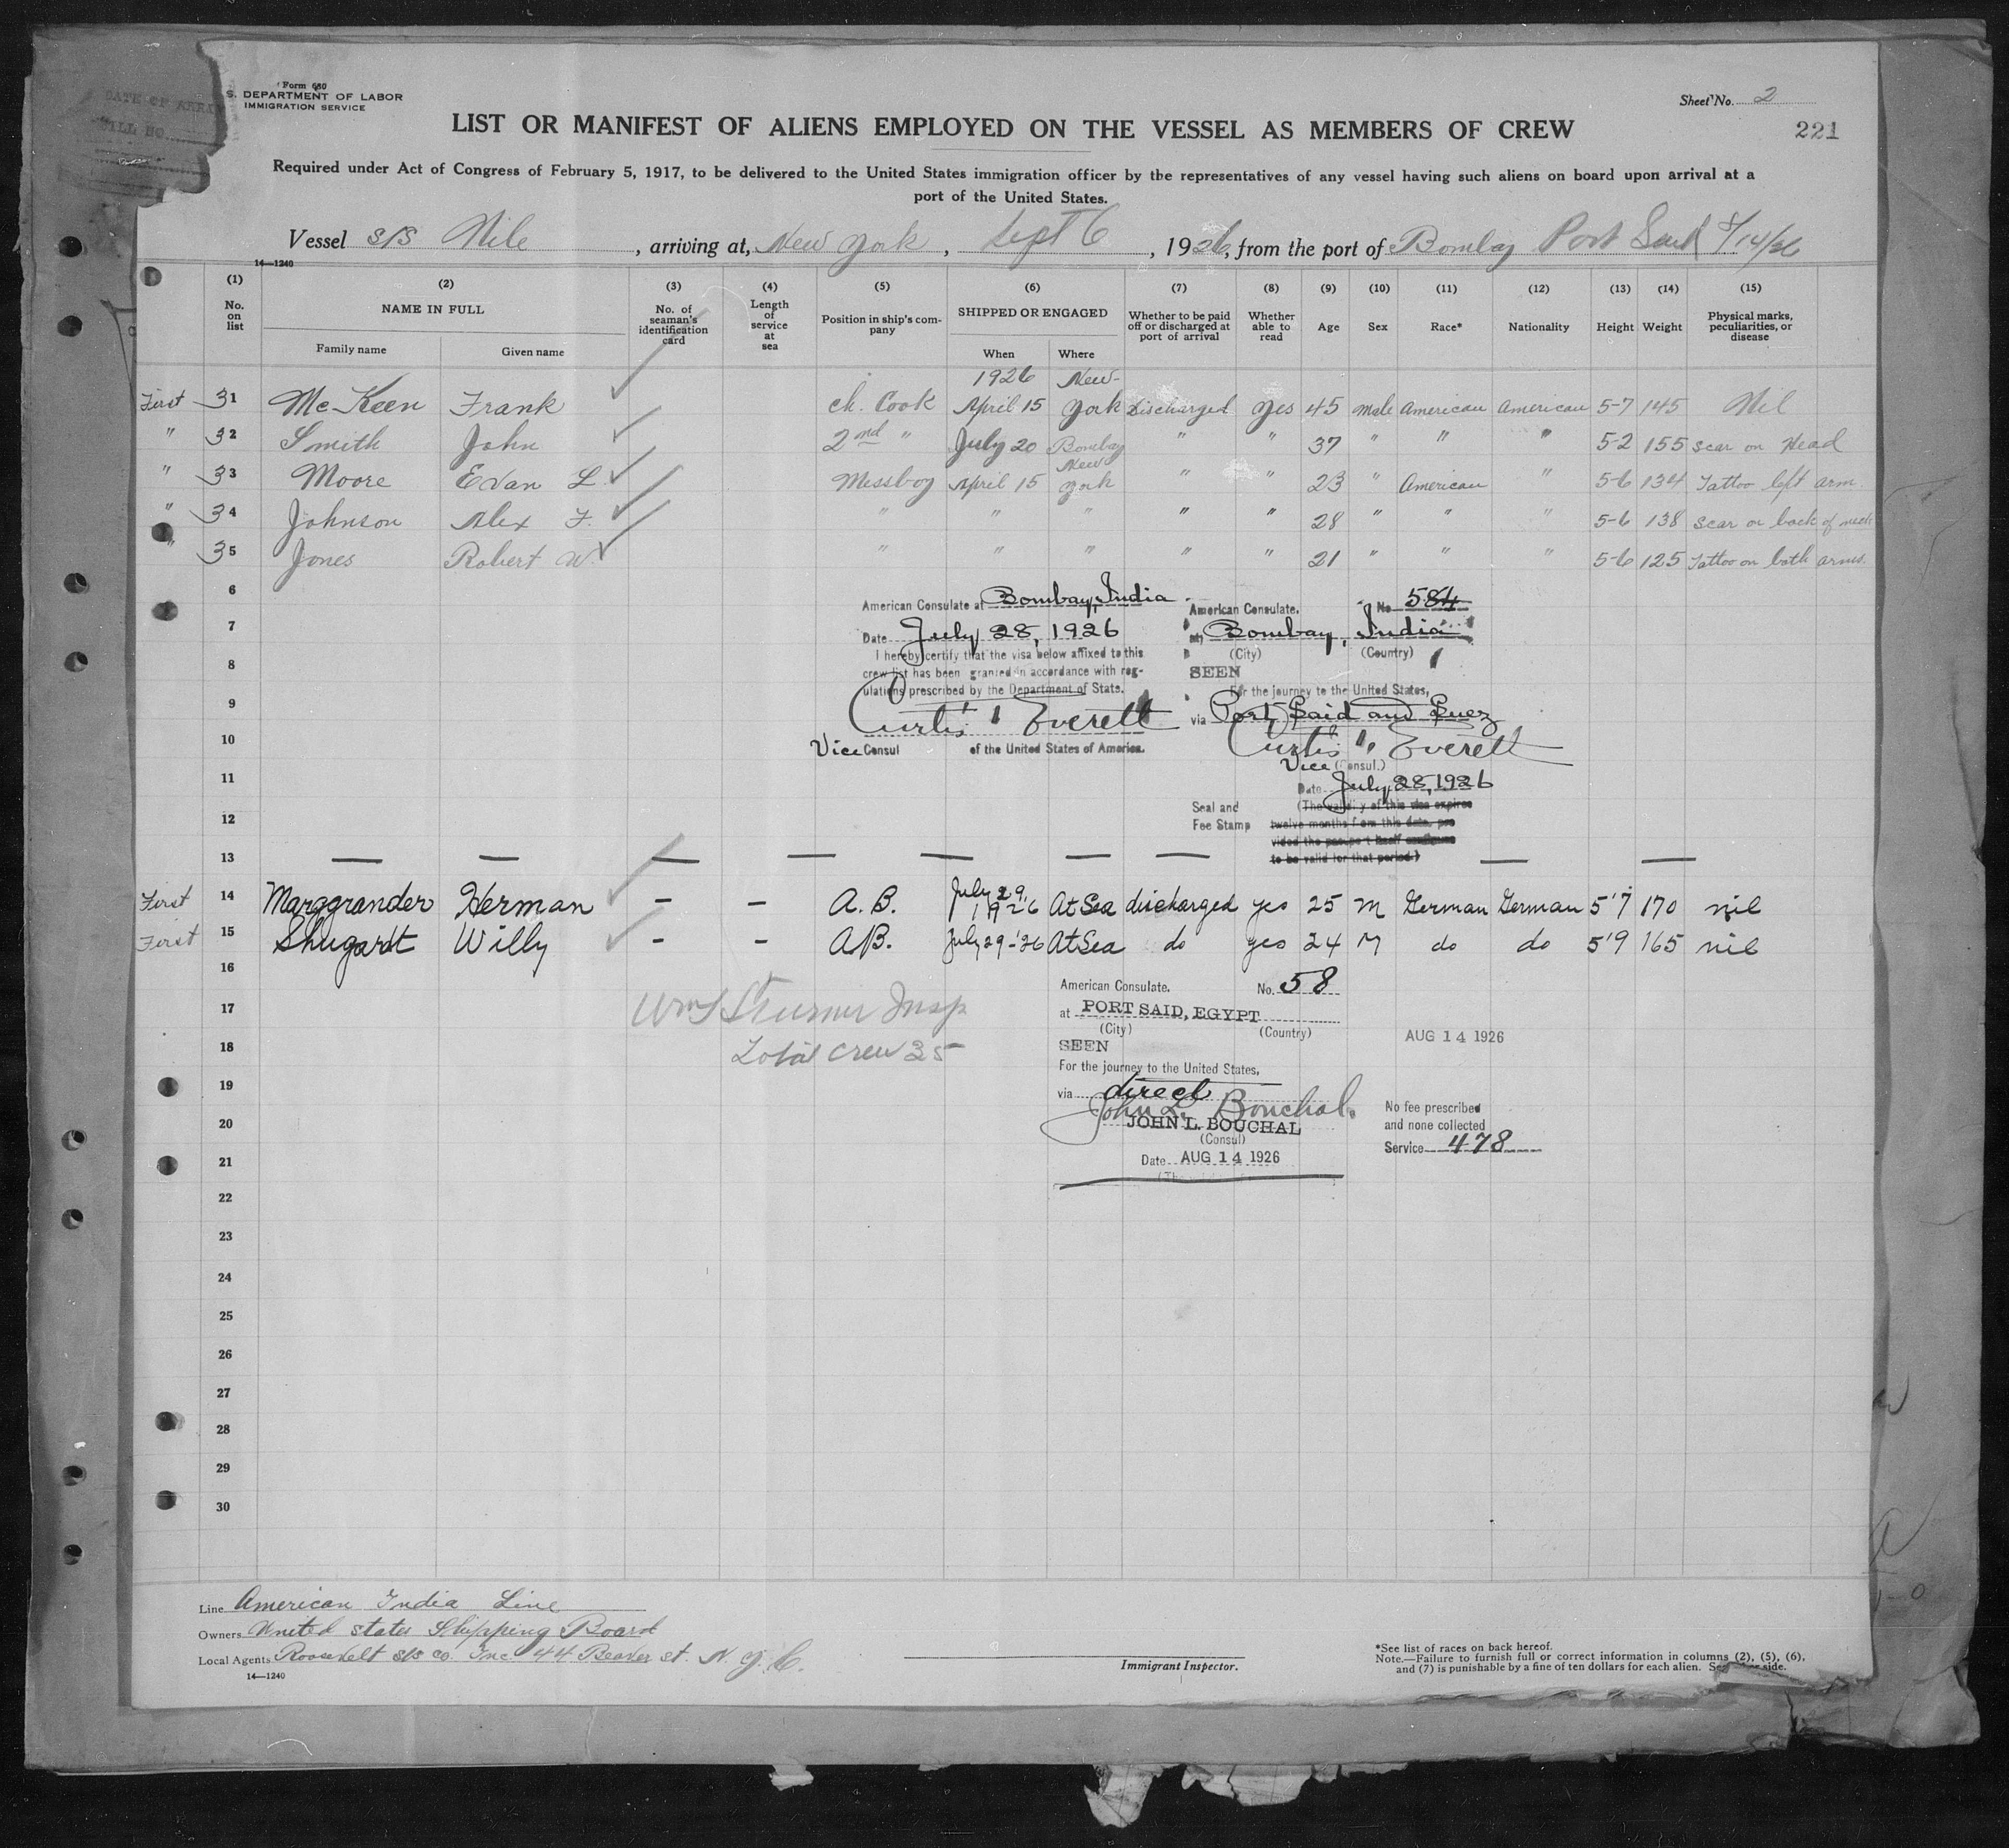 Form 680
S. DEPARTMENT OF LABOR
IMMIGRATION SERVICE
Sheet No. 2
221
LIST OR MANIFEST OF ALIENS EMPLOYED ON THE VESSEL AS MEMBERS OF CREW
Required under Act of Congress of February 5, 1917, to be delivered to the United States immigration officer by the representatives of any vessel having such aliens on board upon arrival at a
port of the United States.
Vessel s/s Nile, arriving at, New York, Sept 6, 1926, from the port of Bombay Port Said 8/14/26
14—1240
(1) (2) (3) (4) (5) (6) (7) (8) (9) (10) (11) (12) (13) (14) (15)
No. on list NAME IN FULL Family name Given name No. of seaman's identification card Length of service at sea Position in ship's company SHIPPED OR ENGAGED When Where Whether to be paid off or discharged at port of arrival Whether able to read Age Sex Race* Nationality Height Weight Physical marks, peculiarities, or disease
1926 New-
First 31 McKeen Frank ch. Cook April 15 York Discharged Yes 45 Male American American 5-7 145 Nil
" 32 Smith John 2nd " July 20 Bombay " " 37 " " " 5-2 155 scar on Head
" 33 Moore Evan L. Messboy April 15 New York " " 23 " American " 5-6 134 Tattoo left arm
" 34 Johnson Alex F. " " " " " 28 " " " 5-6 138 scar on back of neck
" 35 Jones Robert W. " " " " " 21 " " " 5-6 125 Tattoo on both arms.
6
7
8
9
10
11
12
American Consulate at Bombay, India
Date July 28, 1926
I hereby certify that the visa below affixed to this
crew list has been granted in accordance with reg-
ulations prescribed by the Department of State.
Curtis Everett
Vice Consul of the United States of America.
American Consulate. No 584
at Bombay, India
(City) (Country)
SEEN
For the journey to the United States,
via Port Said and Suez
Curtis Everett
Vice (Consul.)
Date July 28, 1926
Seal and
Fee Stamp
(The validity of this visa expires
twelve months from this date, pro
vided the passport itself continues
to be valid for that period.)
13 — — — — — — — — —
First 14 Marggrander Herman - - A.B. July 29 1926 At Sea discharged yes 25 M German German 5'7 170 nil
First 15 Shugardt Willy - - A.B. July 29-'26 At Sea do yes 24 M do do 5'9 165 nil
16
17
18
19
20
21
22
23
24
25
26
27
28
29
30
Insp
Total crew 35
American Consulate. No. 58
at PORT SAID, EGYPT
(City) (Country)
AUG 14 1926
SEEN
For the journey to the United States,
via direct
John L. Bouchal.
JOHN L. BOUCHAL
(Consul)
Date AUG 14 1926
No fee prescribed
and none collected
Service 478
Line American India Line
Owners United states Shipping Board
Local Agents Roosevelt s/s co. Inc 44 Beaver st. N.Y.C.
14—1240
Immigrant Inspector.
*See list of races on back hereof.
Note.—Failure to furnish full or correct information in columns (2), (5), (6),
and (7) is punishable by a fine of ten dollars for each alien. side.